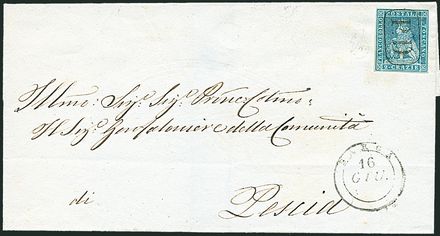 FRANCOBOLLO POSTALE TOSCANO
2 CRAZIE
Illmo: Sig.e Sig.e Prone Colmo:
Il Sig.e Gonfaloniere della Comunità
16
GIU.
di
Pescia